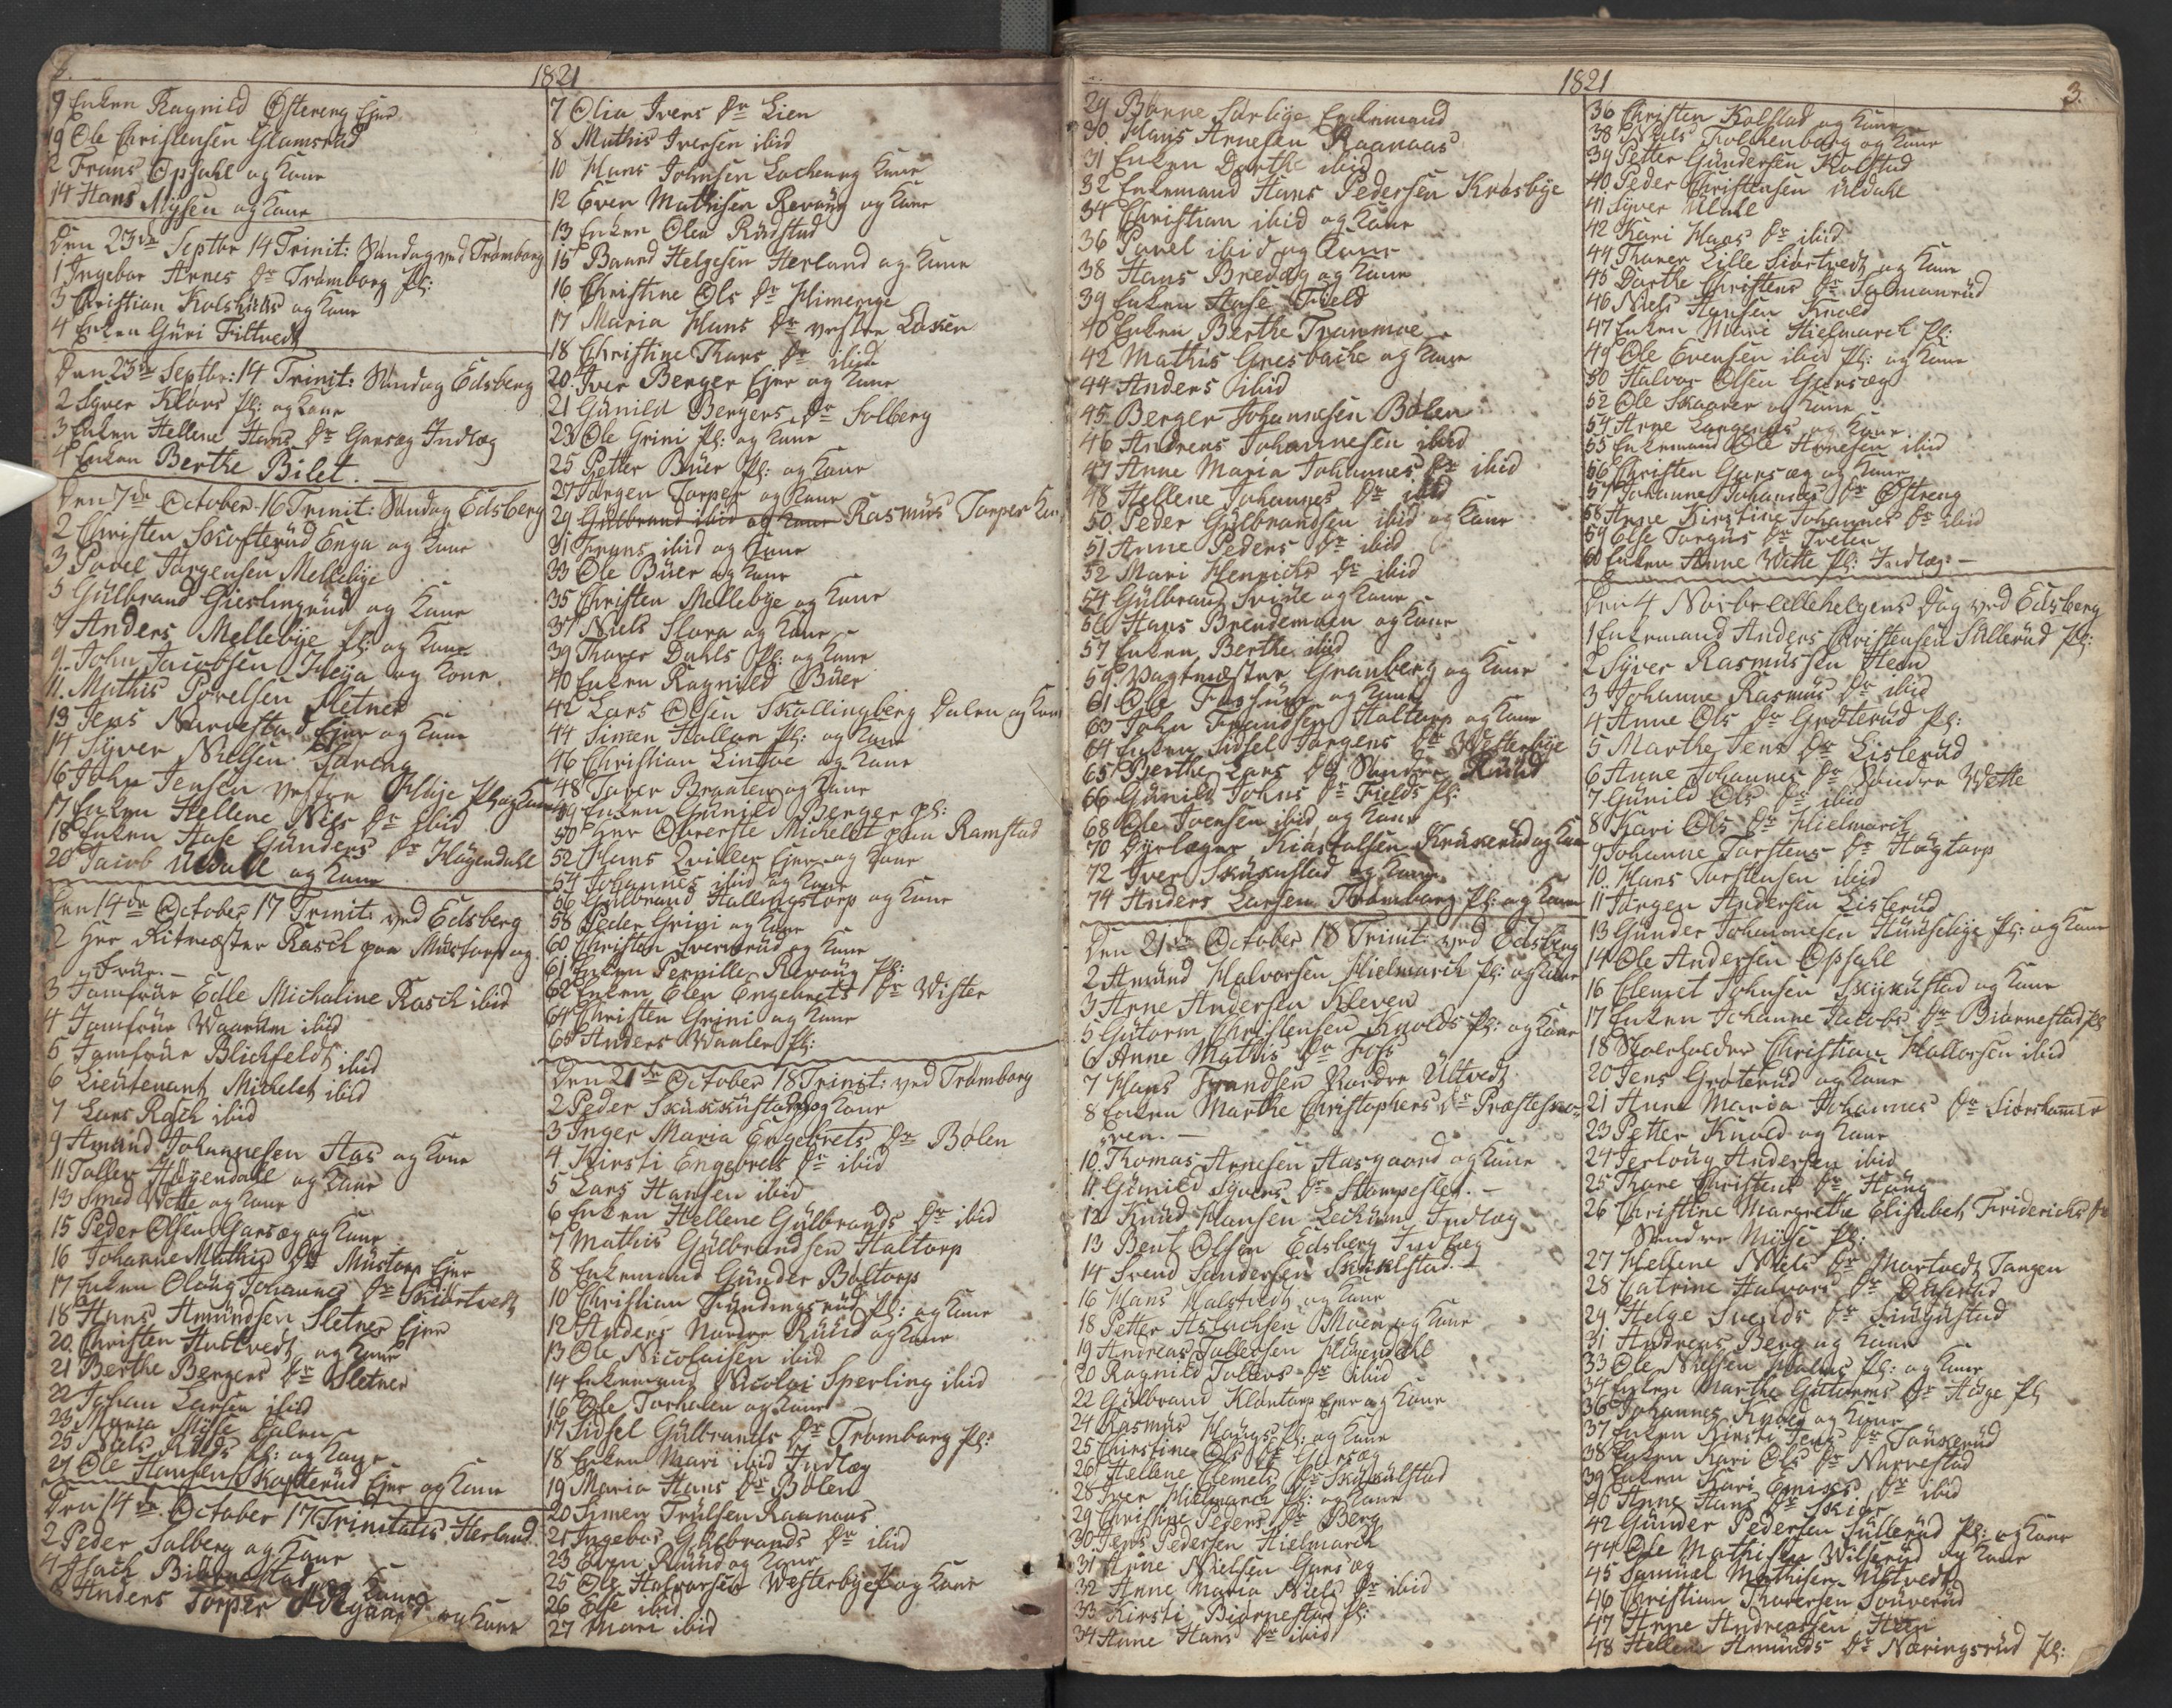 1821
9 Enken Ragnild Østereng Ejer
19 Ole Christensen Glamsrud
2 Frans Opsahl og Kone
14 Hans Mysen og Kone
Den 23de Septbr 14 Trinit: Søndag ved Trømborg
1 Ingebor Arnes Dr Trømborg Pl:
3 Christian Kolshuus og Kone
4 Enken Guri Filtvedt
Den 23de Septbr: 14 Trinit: Søndag Edsberg
2 Syver Klovs Pl: og Kone
3 Enken Hellene Hans Dr Garsæg Indlæg
4 Enken Berthe Bilet. —
Den 7de October 16 Trinit: Søndag Edsberg
2 Christen Skofterud Enga og Kone
3 Povel Jørgensen Mellebye
5 Gulbrand Gieslingrud og Kone
7 Anders Mellebye Pl: og Kone
9 John Jacobsen Heÿa og Kone
11 Mathis Povelsen Sletner
13 Jens Narvestad Ejer og Kone
14 Syver Nielsen
16 John Jensen vestre Pl: og Kone
17 Enken Hellene Niels Dr ibid
18 Enken Aase Gunders Dr Høgendahl
20 Jacob Udahl og Kone
Den 14de October 17 Trinit: ved Edsberg
2 Herr Ritmæster Rasch paa Mustorp og
Frue. —
3 Jomfrue Edle Michaline Rasch ibid
4 Jomfrue Waarum ibid
5 Jomfrue Blichfeldt ibid
6 Lieutenant Michelet ibid
7 Lars Rasch ibid
9 Amund Johannesen Aas og Kone
11 Toller Høgendahl og Kone
13 Smed Vette og Kone
15 Peder Olsen Garsæg og Kone
16 Johanne Mathis Dr Mustorp Ejer
17 Enken Oloug Johannes Dr Skiørtvedt
18 Hans Amundsen Sletner Ejer
20 Christen Hultvedt og Kone
21 Berthe Bergers Dr Sletner
22 Johan Larsen ibid
23 Maria Myse Dalen
25 Niels Ruuds Pl: og Kone
27 Ole Hansen Skofterud Ejer og Kone
Den 14de October 17 Trinitatis Herland
2 Peder Solberg og Kone
4 Isach og Kone
6 Anders Torper og Kone
7 Olia Ivers Dr Lien
8 Mathis Iversen ibid
10 Hans Johnsen og Kone
12 Even Mathisen Revoug og Kone
13 Enken Olea Rudstad
15 Baard Helgesen Herland og Kone
16 Christine Ols Dr Himenge
17 Maria Hans Dr vestre Løken
18 Christine Thors Dr ibid
20 Iver Berger Ejer og Kone
21 Gunild Bergers Dr Solberg
23 Ole Grini Pl: og Kone
25 Petter Buer Pl: og Kone
27 Jørgen Torper og Kone
29 Gulbrand ibid og Kone Rasmus Torper
31 Frans ibid og Kone
33 Ole Buer og Kone
35 Christen Mellebye og Kone
37 Niels Slora og Kone
39 Thorer Dahls Pl: og Kone
40 Enken Ragnild Buer
42 Lars Olsen Skollingberg Dalen og Kone
44 Simen Hallan Pl: og Kone
46 Christian Lintoe og Kone
48 Tover Braaten og Kone
49 Enken Gunild Berger Pl:
50 Herr Oberste Michelet paa Ramstad
52 Hans Qviller Ejer og Kone
54 Johannes ibid og Kone
56 Gulbrand Hallingstorp og Kone
58 Peder Grini og Kone
60 Christen Sververud og Kone
61 Enken Pernille Revoug Pl:
62 Enken Elen Engebrets Dr Wister
64 Christen Grini og Kone
65 Anders Waaler Pl:
Den 21de October 18 Trinit: ved Trømborg
2 Peder Skukkustad og Kone
3 Inger Maria Engebrets Dr Bølen
4 Kirsti Engebrets Dr ibid
5 Lars Hansen ibid
6 Enken Hellene Gulbrands Dr ibid
7 Mathis Gulbrandsen Haltorp
8 Enkemand Gunder Bøltorp
10 Christian Fundingsrud Pl: og Kone
12 Anders Nordre Ruud og Kone
13 Ole Nicolaisen ibid
14 Enkemand Nicolai Sperling ibid
16 Ole Torholen og Kone
17 Sidsel Gulbrands Dr Trømborg Pl:
18 Enken Mari ibid Indlæg
19 Maria Hans Dr Bølen
20 Simen Trulsen Raanaas
21 Ingebor Gulbrands Dr ibid
23 Even Ruud og Kone
25 Ole Halvorsen Westerbye og Kone
26 Else ibid
27 Mari ibid
1821
3.
29 Bønne Enkemand
30 Hans Arnesen Raanaas
31 Enken Dorthe ibid
32 Enkemand Hans Pedersen Krosbye
34 Christian ibid og Kone
36 Povel ibid og Kone
38 Hans og Kone
39 Enken Aase Field
40 Enken Berthe
42 Mathis Gresbache og Kone
44 Anders ibid
45 Berger Johannesen Bølen
46 Andreas Johannesen ibid
47 Anne Maria Johannes Dr ibid
48 Hellene Johannes Dr ibid
50 Peder Gulbrandsen ibid og Kone
51 Anne Peders Dr ibid
52 Mari Henrichs Dr ibid
54 Gulbrand og Kone
56 Hans Brendemoen og Kone
57 Enken Berthe ibid
59 Vagtmæster Granberg og Kone
61 Ole og Kone
63 John Haltorp og Kone
64 Enken Sidsel Jørgens Dr Westerbye
65 Berthe Lars Dr Søndre Ruud
66 Gunild Johns Dr Fields Pl:
68 Ole Iversen ibid og Kone
70 Dyrlæge Krukerud og Kone
72 Iver Skukustad og Kone
74 Anders Larsen Trømborg Pl: og Kone
Den 21de October 18 Trinit: ved Edsberg
2 Amund Halvorsen Hielmarck Pl: og Kone
3 Arne Andersen Kleven
5 Gutorm Christensen Knolds Pl: og Kone
6 Anne Mathis Dr Foss
7 Hans Nordre Ultvedt
8 Enken Marthe Christophers Dr Præsteskoven. —
10 Thomas Arnesen Aasgaard og Kone
11 Gunild Syvers Dr Stampeslet. —
12 Knud Hansen Leckum Indlæg
13 Bent Olsen Edsberg Indlæg
14 Svend Sandersen Skukelstad. —
16 Hans og Kone
18 Petter Aslachsen Moen og Kone
19 Andreas Tollersen Høgendahl
20 Ragnild Tollers Dr ibid
22 Gulbrand Klontorp Ejer og Kone
24 Rasmus Hougs Pl: og Kone
25 Chirstine Ols Dr Garsæg
26 Hellene Clemets Dr Skukulstad
28 Iver Hielmarck Pl: og Kone
29 Christine Peders Dr Berg
30 Jens Pedersen Hielmarck
31 Arne Nielsen Garsæg
32 Anne Maria Niels Dr ibid
33 Kirsti Biørnestad Pl:
34 Anne Hans Dr ibid
36 Christen Kolstad og Kone
38 Niels Folkenborg og Kone
39 Petter Gundersen Kolstad
40 Peder Christensen Udahl
41 Syver Udahl
42 Kari Hans Dr ibid
44 Thorer Lille Siørtvedt og Kone
45 Dorthe Christens Dr Salmonrud
46 Niels Hansen Knold
47 Enken Marie Hielmarck Pl:
49 Ole Evensen ibid Pl: og Kone
50 Halvor Olsen Garsæg
52 Ole Skaarer og Kone
54 Arne Langenæs og Kone
55 Enkemand Ole Arnesen ibid
56 Christen Garsæg og Kone
57 Johanne Johannes Dr Østreng
58 Anne Kirstine Johannes Dr ibid
59 Else Torgus Dr Treten
60 Enken Anne Wette Pl: Indlæg. —
Den 4 Novbr Allehelgens Dag ved Edsberg
1 Enkemand Anders Christensen Sillerud Pl:
2 Syver Rasmussen Heen
3 Johanne Rasmus Dr ibid
4 Anne Ols Dr Grøterud Pl:
5 Marthe Jens Dr Lislerud
6 Anne Johannes Dr Søndre Wette
7 Gunild Ols Dr ibid
8 Kari Ols Dr Hielmarck
9 Johanne Torstens Dr Høgtorp
10 Hans Torstensen ibid
11 Jørgen Andersen Lislerud
13 Gunder Johannesen Hunselige Pl: og Kone
14 Ole Andersen Opsahl
16 Clemet Johnsen Skukustad og Kone
17 Enken Johanne Jacobs Dr Biørnestad Pl
18 Skoleholder Christian Hallorsen ibid
20 Jens Grøterud og Kone
21 Anne Maria Johannes Dr
23 Petter Knold og Kone
24 Andersen ibid
25 Thore Christens Dr Houg
26 Christine Margrethe Elisabet Friderichs Dr
Søndre Myse Pl:
27 Hellene Niels Dr Hartvedt Tangen
28 Catrine Halvors Dr
29 Helge Svends Dr
31 Andreas Berg og Kone
33 Ole Nielsen Pl: og Kone
34 Enken Marthe Guttorms Dr Pl
36 Johannes Knold og Kone
37 Enken Kirsti Jens Dr
38 Enken Kari Ols Dr Narvestad
39 Enken Kari Dr ibid
40 Anne Hans Dr Skiør
42 Gunder Pedersen Sullerud Pl: og Kone
44 Ole Mathisen Wilserud og Kone
45 Samuel Mathisen Ultvedt
46 Christian Thoresen Souverud
47 Arne Andreassen Heen
48 Hellene Amunds Dr Næringsrud Pl: